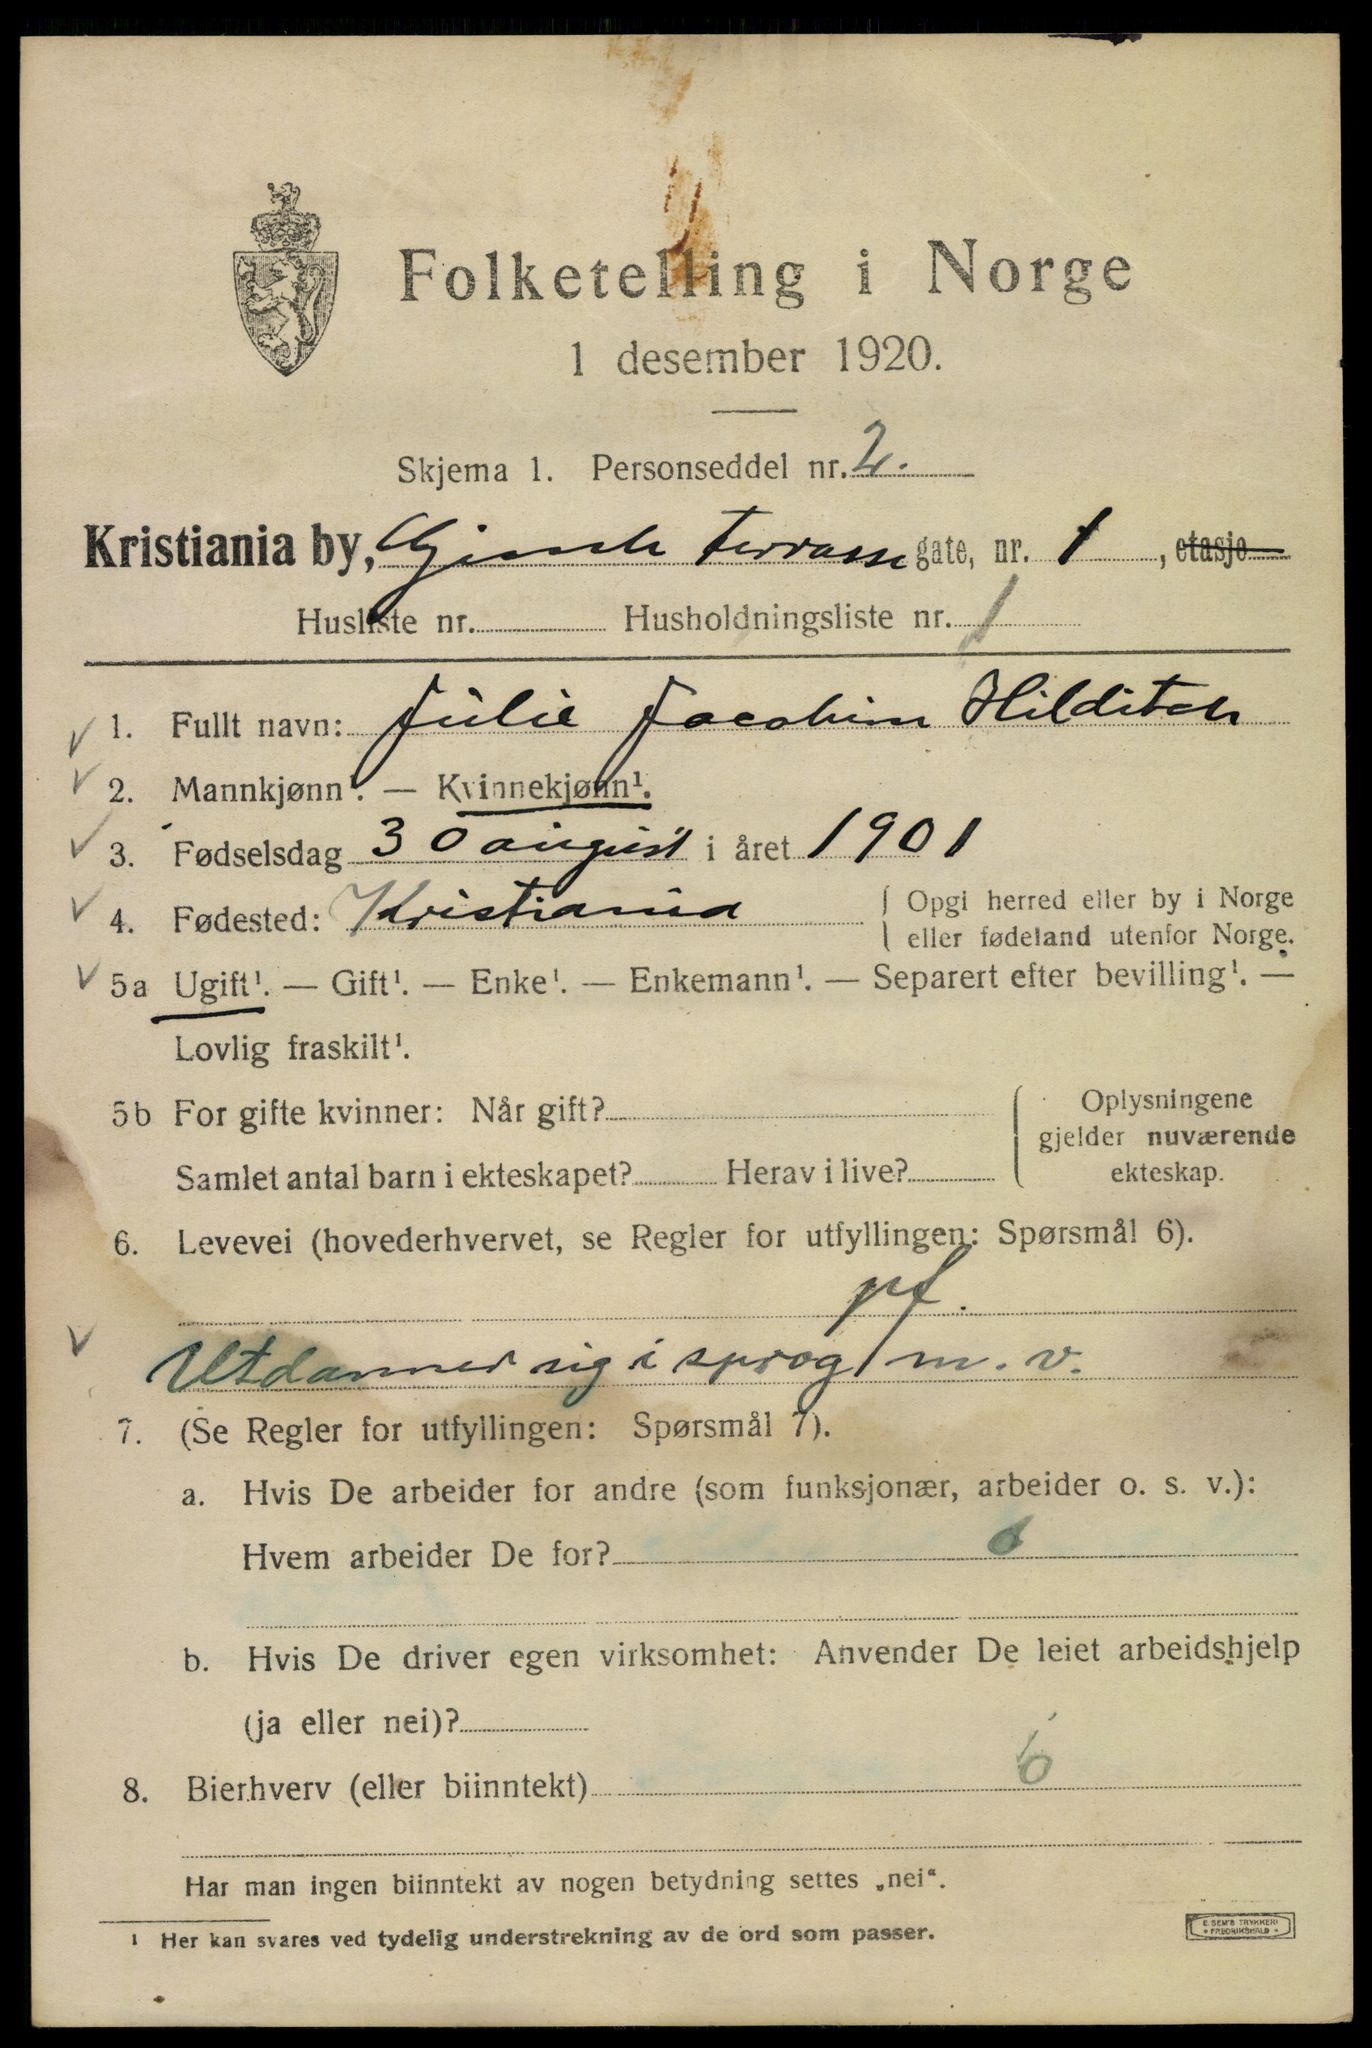 Folketelling i Norge
1 desember 1920.
Skjema 1. Personseddel nr. 2.
Kristiania by, Gimle terrasse gate, nr. 1, etasje
Husliste nr. Husholdningsliste nr. 1
1. Fullt navn: Julie Jacobine Hilditch
2. Mannkjønn¹. — Kvinnekjønn¹.
3. Fødselsdag 30 august i året 1901
4. Fødested: Kristiania { Opgi herred eller by i Norge
eller fødeland utenfor Norge.
5a Ugift¹. — Gift¹. — Enke¹. — Enkemann¹. — Separert efter bevilling¹. —
Lovlig fraskilt¹.
5b For gifte kvinner: Når gift? { Oplysningene
gjelder nuværende
Samlet antal barn i ekteskapet? Herav i live? ekteskap.
6. Levevei (hovederhvervet, se Regler for utfyllingen: Spørsmål 6).
pf.
Utdanner sig i sprog m. v.
7. (Se Regler for utfyllingen: Spørsmål 7).
a. Hvis De arbeider for andre (som funksjonær, arbeider o. s. v.):
Hvem arbeider De for?
b. Hvis De driver egen virksomhet: Anvender De leiet arbeidshjelp
(ja eller nei)?
8. Bierhverv (eller biinntekt)
Har man ingen biinntekt av nogen betydning settes „nei“.
¹ Her kan svares ved tydelig understrekning av de ord som passer.
E. SEM'S TRYKKERI
FREDRIKSHALD